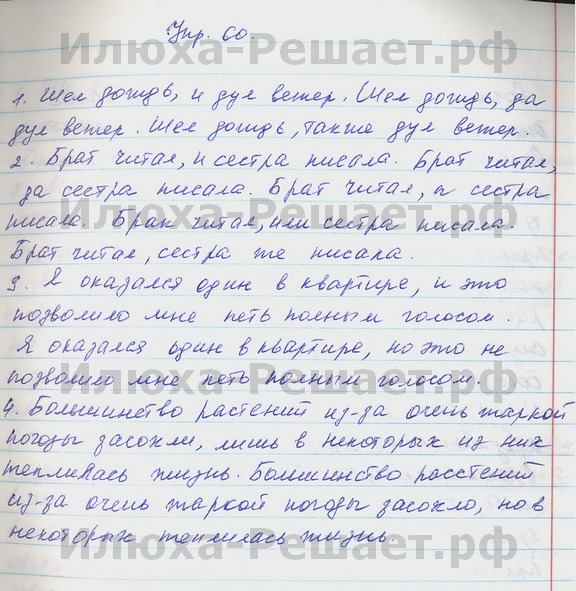 Упр. 60.
1. Шел дождь, и дул ветер. Шел дождь, да
дул ветер. Шел дождь, также дул ветер.
2. Брат читал, и сестра писала. Брат читал,
да сестра писала. Брат читал, а сестра
писала. Брат читал, или сестра писала.
Брат читал, сестра же писала.
3. Я оказался один в квартире, и это
позволило мне петь полным голосом.
Я оказался один в квартире, но это не
позволило мне петь полным голосом.
4. Большинство растений из-за очень жаркой
погоды засохли, лишь в некоторых из них
теплилась жизнь. Большинство расстений
из-за очень жаркой погоды засохло, но в
некоторых теплилась жизнь.
Илюха-Решает.рф
Илюха-Решает.рф
Илюха-Решает.рф
Илюха-Решает.рф
Илюха-Решает.рф